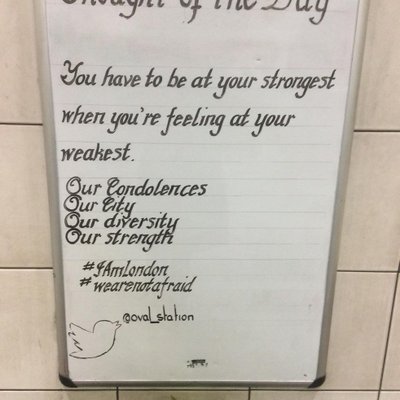 Thought of the Day
You have to be at your strongest
when you're feeling at your
weakest.
Our Condolences
Our City
Our diversity
Our strength
#IAmLondon
#wearenotafraid
@oval_station